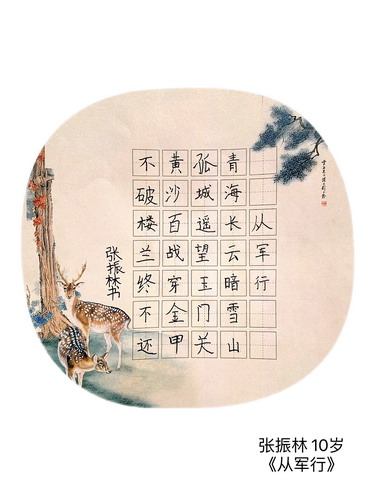 从军行
青海长云暗雪山
孤城遥望玉门关
黄沙百战穿金甲
不破楼兰终不还
张振林书
张振林 10岁
《从军行》